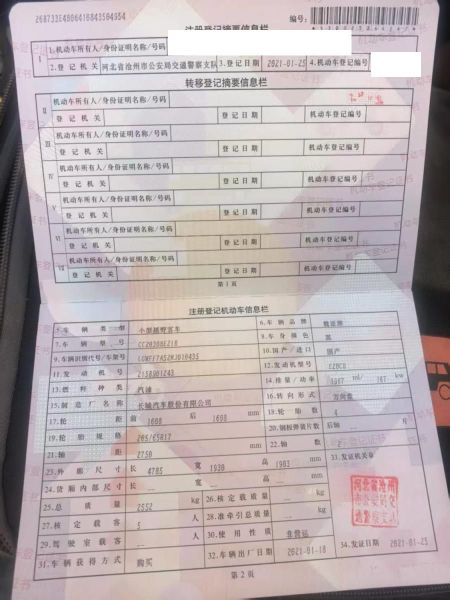 注册登记摘要信息栏
编号:
I 1.机动车所有人/身份证明名称/号码
2.登记机关 河北省沧州市公安局交通警察支队 3.登记日期 2021-01-25 4.机动车登记编号
转移登记摘要信息栏
II 机动车所有人/身份证明名称/号码
登记机关 登记日期 机动车登记编号
III 机动车所有人/身份证明名称/号码
登记机关 登记日期 机动车登记编号
IV 机动车所有人/身份证明名称/号码
登记机关 登记日期 机动车登记编号
V 机动车所有人/身份证明名称/号码
登记机关 登记日期 机动车登记编号
VI 机动车所有人/身份证明名称/号码
登记机关 登记日期 机动车登记编号
VII 机动车所有人/身份证明名称/号码
登记机关 登记日期 机动车登记编号
第1页
注册登记机动车信息栏
5.车辆类型 小型越野客车 6.车辆品牌
7.车辆型号 8.车身颜色 黑
9.车辆识别代号/车架号 10.国产/进口 国产
11.发动机号 12.发动机型号
13.燃料种类 汽油 14.排量/功率 1967 ml/ 167 kw
15.制造厂名称 长城汽车股份有限公司 16.转向形式 方向盘
17.轮距 前 1608 后 1608 mm 18.轮胎数 4
19.轮胎规格 265/65R17 20.钢板弹簧片数 后 片
21.轴距 2750 mm 22.轴数 2
23.外廓尺寸 长 4785 宽 1930 高 1903 mm 33.发证机关章
24.货厢内部尺寸 长 宽 高 mm
25.总质量 2552 kg 26.核定载质量 kg
27.核定载客 5 人 28.准牵引总质量 kg
29.驾驶室载客 人 30.使用性质 非营运
31.车辆获得方式 购买 32.车辆出厂日期 2021-01-18 34.发证日期 2021-01-25
第2页